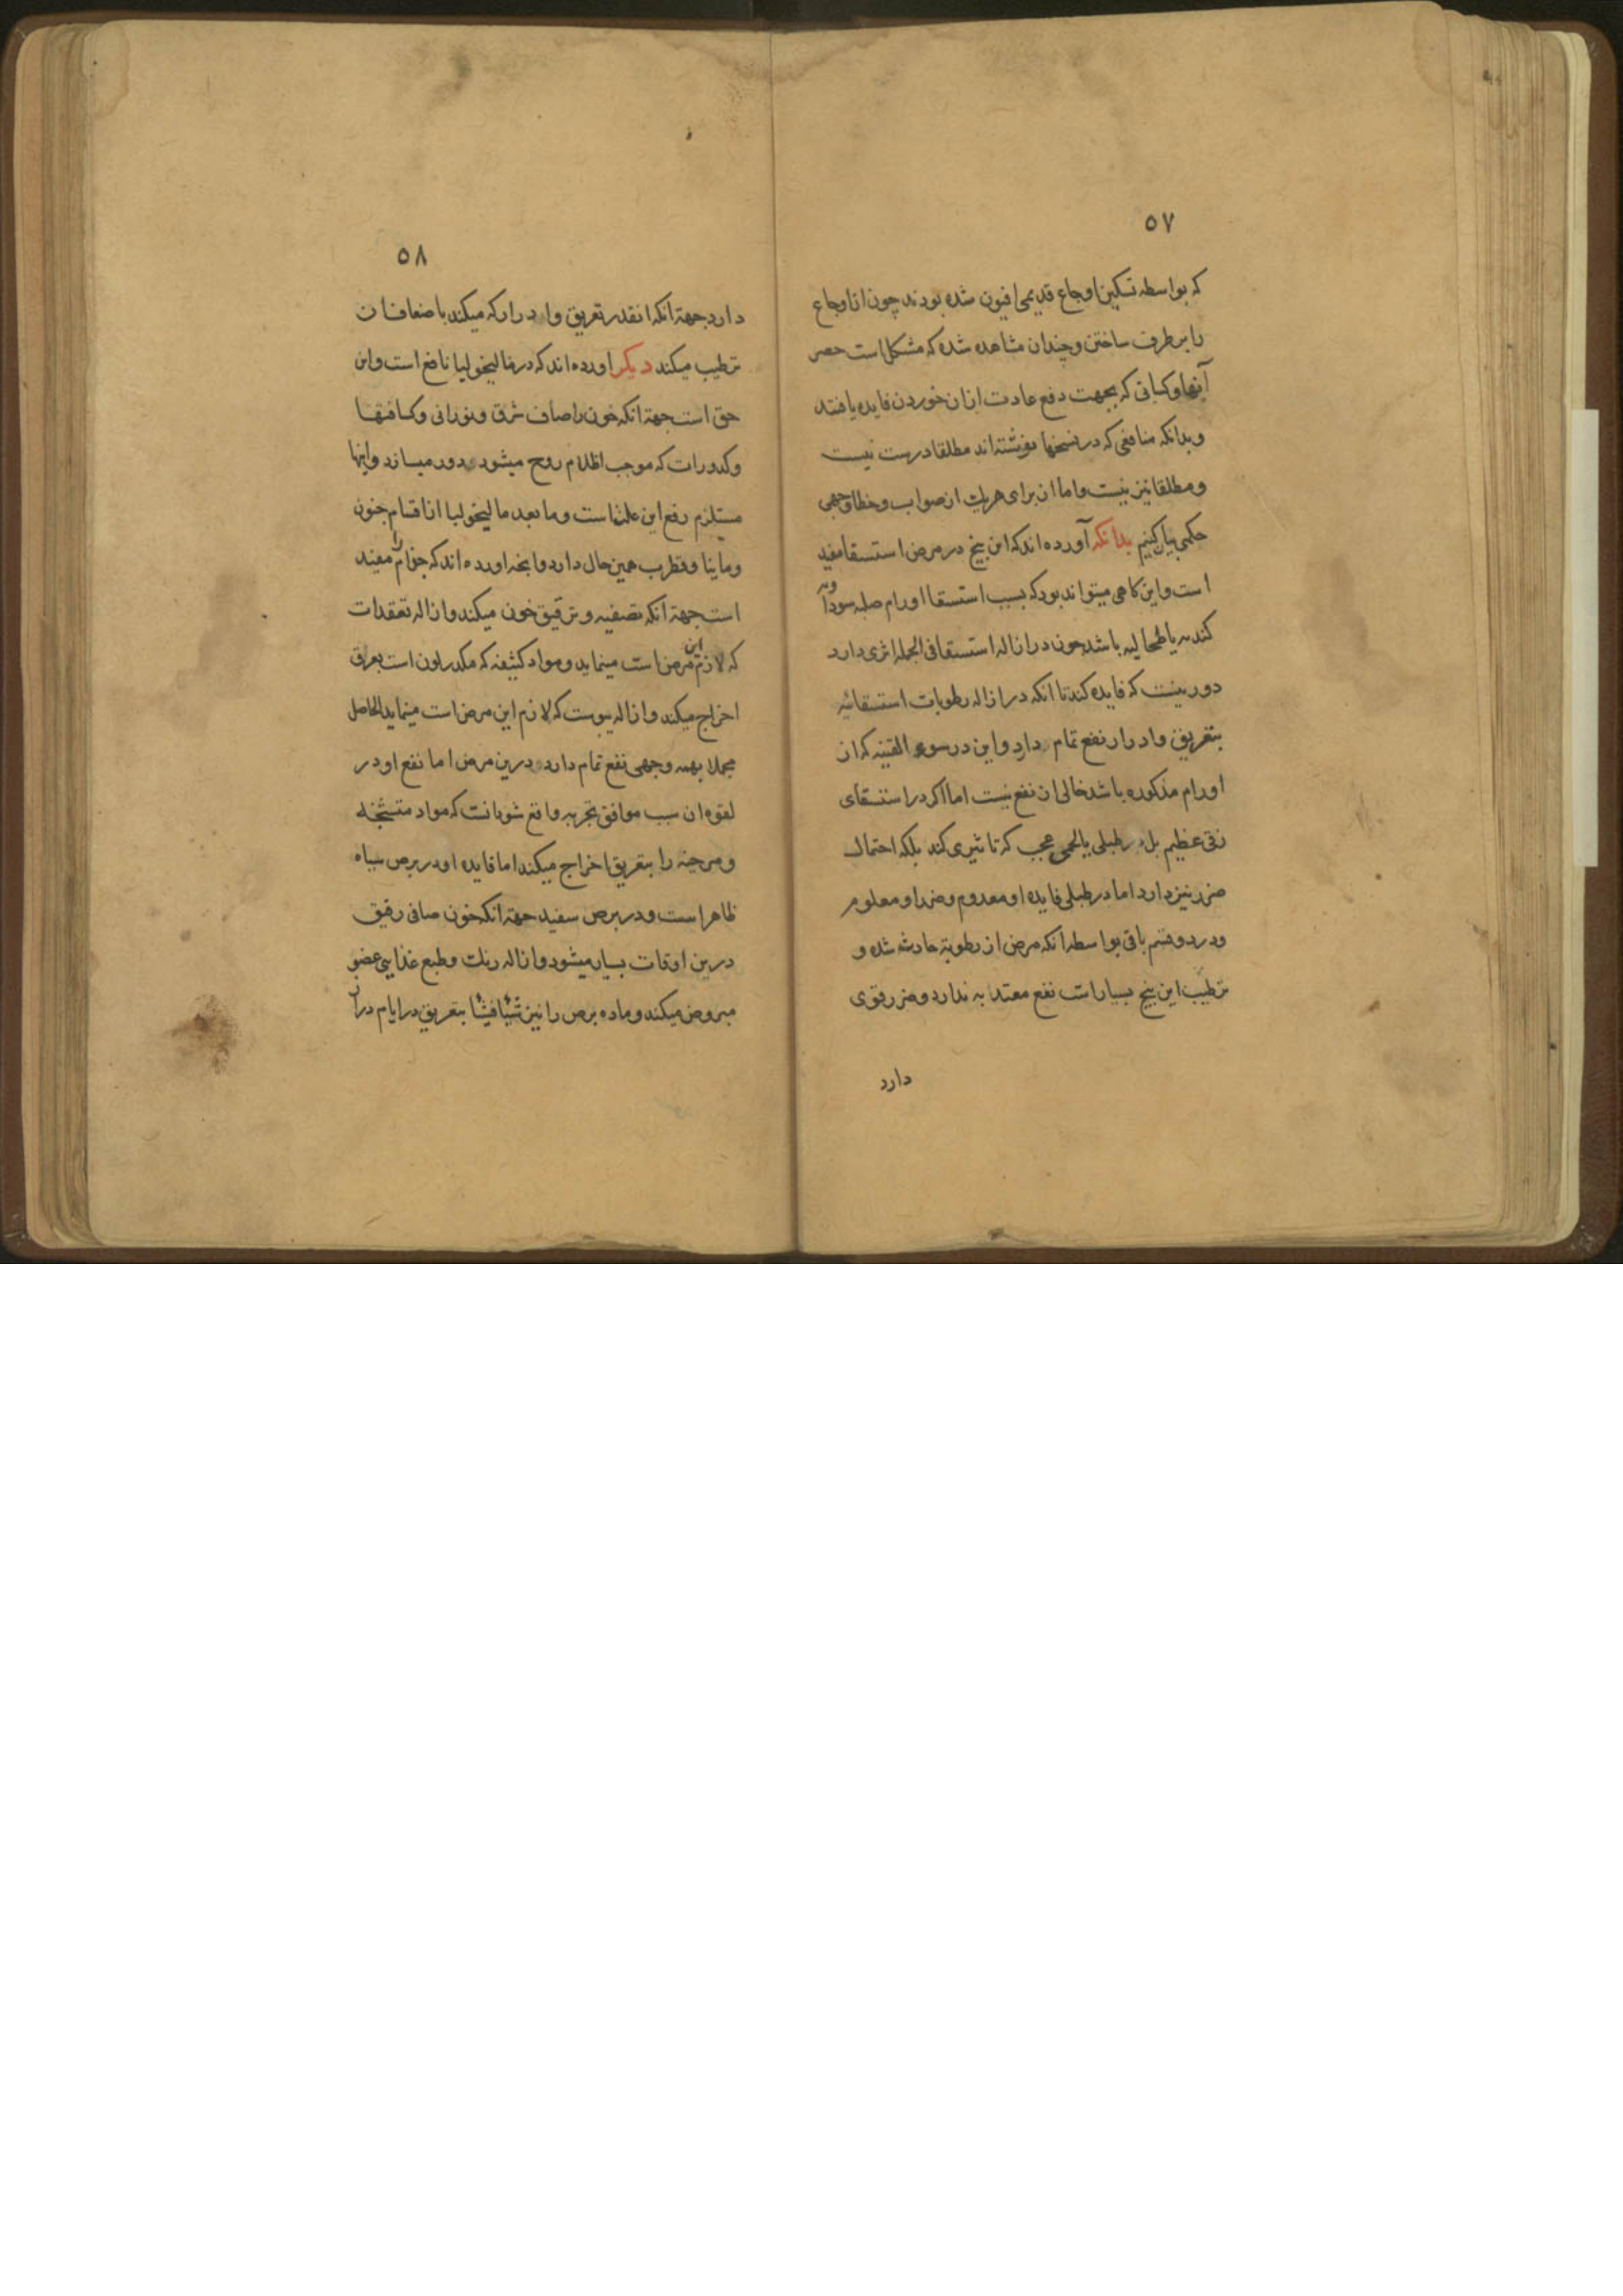 ٥٧
که بواسطه تسکین اوجاع قدیمی افیون شده بودند چون ان اوجاع
را برطرف ساختن و چندان مشاهده شده که مشکل است حصر
آنها و کسانی که بجهت دفع عادت از ان خوردن فایده یافتند
و بدانکه منافعی که در نسخها نوشته‌اند مطلقا درست نیست
و مطلقا نیز نیست و اما ان برای هریک از صواب و خطا وجهی
حکمی بیان کنیم بدانکه آورده‌اند که این بیخ در مرض استسقا مفید
است و این کاهی میتواند بود که بسبب استسقا اورام صلبه سوداویه
کبدیه یا طحالیه باشد چون در ازاله استسقا فی الجمله اثری دارد
دور نیست که فایده کند تا انکه در ازاله رطوبات استسقائیه
بتعریق و ادرار نفع تمام دارد و این در سوء القنیه که از
اورام مذکوره باشد خالی از نفع نیست اما اکر در استسقای
زقی عظیم بل در طبلی یا لحمی عجب که تاثیری کند بلکه احتمال
ضرر نیز دارد اما در طبلی فایده او معدوم و ضرر او معلوم
و در دو قسم باقی بواسطه انکه مرض از رطوبة حادث شده و
ترطیب این بیخ بسیار است نفع معتد به ندارد و ضرر قوی
دارد
٥٨
دارد جهة انکه انقدر تعریق و ادرار که میکند باضعاف ان
ترطیب میکند دیکر اورده‌اند که در مالیخولیا نافع است و این
حق است جهة انکه خون را صاف شرق و نورانی و کسافتها
و کدورات که موجب اظلام روح میشود دور میسازد و اینها
مستلزم رفع این علتهاست و ما بعد مالیخولیا از اقسام جنون
و مانیا و قطرب همین حال دارد و انچه اورده‌اند که جذام را مفید
است جهة انکه تصفیه و ترقیق خون میکند و ازاله تعقدات
که لازم این مرض است مینماید و مواد کثیفه که مکدر لون است بعرق
اخراج میکند و ازاله یبوست که لازم این مرض است مینماید الحاصل
مجملا بهمه وجهی نفع تمام دارد درین مرض اما نفع او در
لقوه ان سبب موافق تجربه واقع شود انست که مواد متشنجه
و مرخیه را بتعریق اخراج میکند اما فایده او در برص سیاه
ظاهر است و در برص سفید جهة انکه خون صافی رقیق
درین اوقات بسیار میشود و ازاله رنک و طبع غذایی عضو
مبروص میکند و ماده برص را نیز شیأ فشیأ بتعریق در ایام دراز